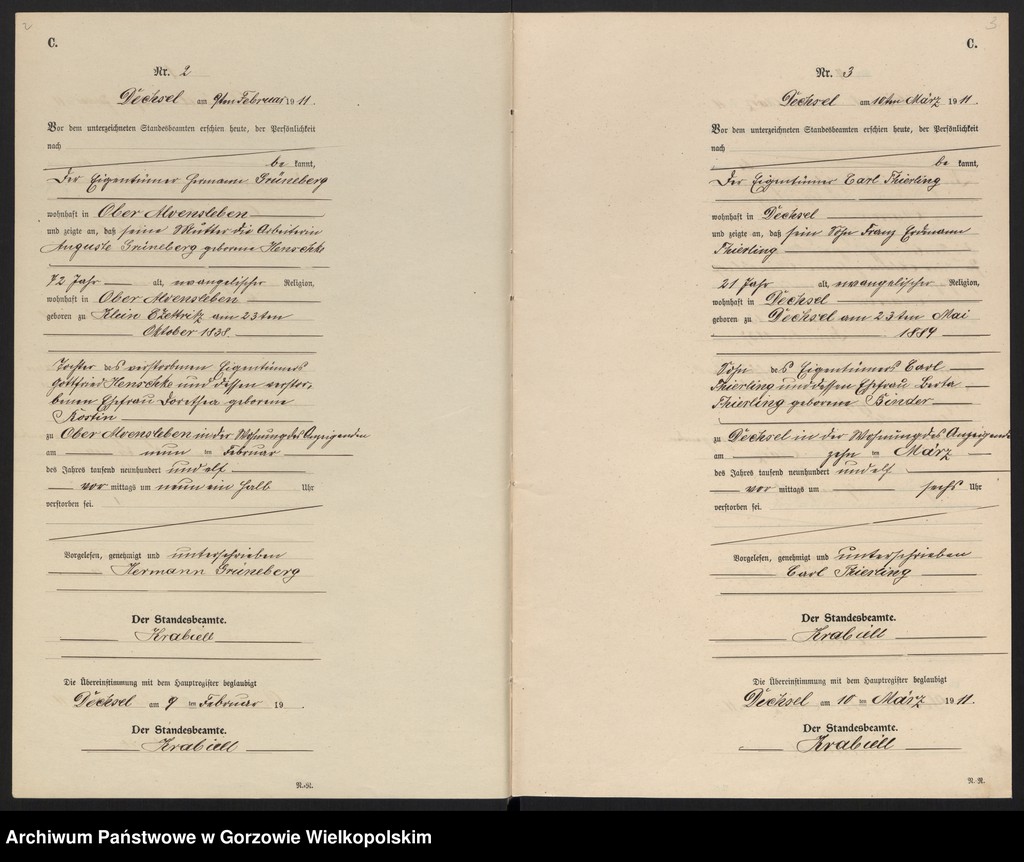 2
C.
Nr. 2
Dechsel am 9ten Februar 1911.
Vor dem unterzeichneten Standesbeamten erschien heute, der Persönlichkeit
nach
be kannt,
Der Eigentümer Hermann Grüneberg
wohnhaft in Ober Alvensleben
und zeigte an, daß seine Mutter die Arbeiterin
Auguste Grüneberg geborene Henschke
72 Jahr alt, evangelischer Religion,
wohnhaft in Ober Alvensleben
geboren zu Klein Czettritz am 23ten
Oktober 1838.
Tochter des verstorbenen Eigentümers
Gottfried Henschke und dessen verstor-
benen Ehefrau Dorothea geborene
zu Ober Alvensleben in der Wohnung des Anzeigenden
am neun ten Februar
des Jahres tausend neunhundert und elf
vor mittags um neun ein halb Uhr
verstorben sei.
Vorgelesen, genehmigt und unterschrieben
Hermann Grüneberg
Der Standesbeamte.
Krabiell
Die Übereinstimmung mit dem Hauptregister beglaubigt
Dechsel am 9 ten Februar 19 .
Der Standesbeamte.
Krabiell
N.-N.
3
C.
Nr. 3
Dechsel am 10ten März 1911.
Vor dem unterzeichneten Standesbeamten erschien heute, der Persönlichkeit
nach
be kannt,
Der Eigentümer Carl Thierling
wohnhaft in Dechsel
und zeigte an, daß sein Sohn Franz Erdmann
Thierling
21 Jahr alt, evangelischer Religion,
wohnhaft in Dechsel
geboren zu Dechsel am 23ten Mai
1889
Sohn des Eigentümers Carl
Thierling und dessen Ehefrau Berta
Thierling geborene Binder
zu Dechsel in der Wohnung des Anzeigende
am zehn ten März
des Jahres tausend neunhundert und elf
vor mittags um sechs Uhr
verstorben sei.
Vorgelesen, genehmigt und unterschrieben
Carl Thierling
Der Standesbeamte.
Krabiell
Die Übereinstimmung mit dem Hauptregister beglaubigt
Dechsel am 10 ten März 1911.
Der Standesbeamte.
Krabiell
N. N.
Archiwum Państwowe w Gorzowie Wielkopolskim